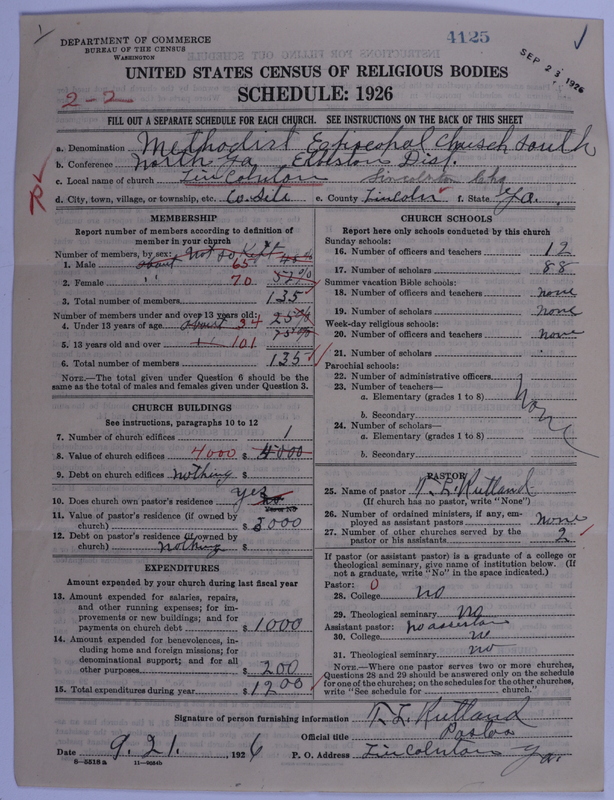 4125
SEP 23 1926
DEPARTMENT OF COMMERCE
BUREAU OF THE CENSUS
WASHINGTON
UNITED STATES CENSUS OF RELIGIOUS BODIES
2-2
SCHEDULE: 1926
FILL OUT A SEPARATE SCHEDULE FOR EACH CHURCH. SEE INSTRUCTIONS ON THE BACK OF THIS SHEET
a. Denomination Methodist Episcopal Church South
b. Conference North Ga Elberton Dist.
c. Local name of church Lincolnton Lincolnton Chg
d. City, town, village, or township, etc. Co. Site e. County Lincoln f. State Ga.
MEMBERSHIP
Report number of members according to definition of member in your church
Number of members, by sex: not so Kept
1. Male about 65 48%
2. Female " 70 52%
3. Total number of members 135
Number of members under and over 13 years old:
4. Under 13 years of age about 34 25%
5. 13 years old and over " 101 75%
6. Total number of members 135
NOTE.—The total given under Question 6 should be the same as the total of males and females given under Question 3.
CHURCH BUILDINGS
See instructions, paragraphs 10 to 12
7. Number of church edifices 1
8. Value of church edifices 4000 $ 4000
9. Debt on church edifices nothing $
10. Does church own pastor's residence yes
Yes or No
11. Value of pastor's residence (if owned by church) $ 3000
12. Debt on pastor's residence (if owned by church) nothing $
EXPENDITURES
Amount expended by your church during last fiscal year
13. Amount expended for salaries, repairs, and other running expenses; for improvements or new buildings; and for payments on church debt $ 1000
14. Amount expended for benevolences, including home and foreign missions; for denominational support; and for all other purposes $ 200
15. Total expenditures during year $ 1200
CHURCH SCHOOLS
Report here only schools conducted by this church
Sunday schools:
16. Number of officers and teachers 12
17. Number of scholars 88
Summer vacation Bible schools:
18. Number of officers and teachers none
19. Number of scholars none
Week-day religious schools:
20. Number of officers and teachers none
21. Number of scholars
Parochial schools:
22. Number of administrative officers
23. Number of teachers—
a. Elementary (grades 1 to 8) none
b. Secondary
24. Number of scholars—
a. Elementary (grades 1 to 8)
b. Secondary
PASTOR
25. Name of pastor T. L. Rutland
(If church has no pastor, write "None")
26. Number of ordained ministers, if any, employed as assistant pastors none
27. Number of other churches served by the pastor or his assistants 2
If pastor (or assistant pastor) is a graduate of a college or theological seminary, give name of institution below. (If not a graduate, write "No" in the space indicated.)
Pastor: 0
28. College no
29. Theological seminary no
Assistant pastor: no assistant
30. College no
31. Theological seminary no
NOTE.—Where one pastor serves two or more churches, Questions 28 and 29 should be answered only on the schedule for one of the churches; on the schedules for the other churches, write "See schedule for church."
Signature of person furnishing information T. L. Rutland
Official title Pastor
Date 9. 21. 1926 P. O. Address Lincolnton Ga.
8—5518 a